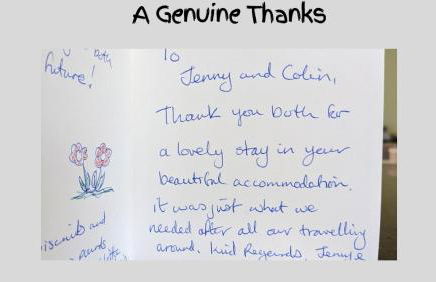 A Genuine Thanks
both
future!
To
Jenny and Colin,
Thank you both for
a lovely stay in your
beautiful accommodation.
it was just what we
needed after all our travelling
around. Kind Regards, Jennie
iscuits and